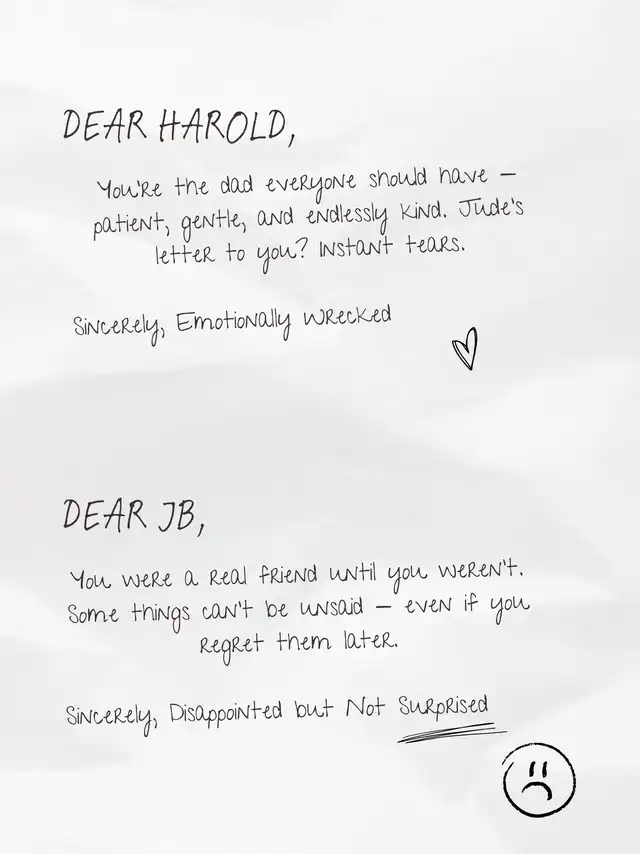 DEAR HAROLD,
You're the dad everyone should have —
patient, gentle, and endlessly kind. Jude's
letter to you? Instant tears.
Sincerely, Emotionally Wrecked
DEAR JB,
You were a real friend until you weren't.
Some things can't be unsaid — even if you
regret them later.
Sincerely, Disappointed but Not Surprised